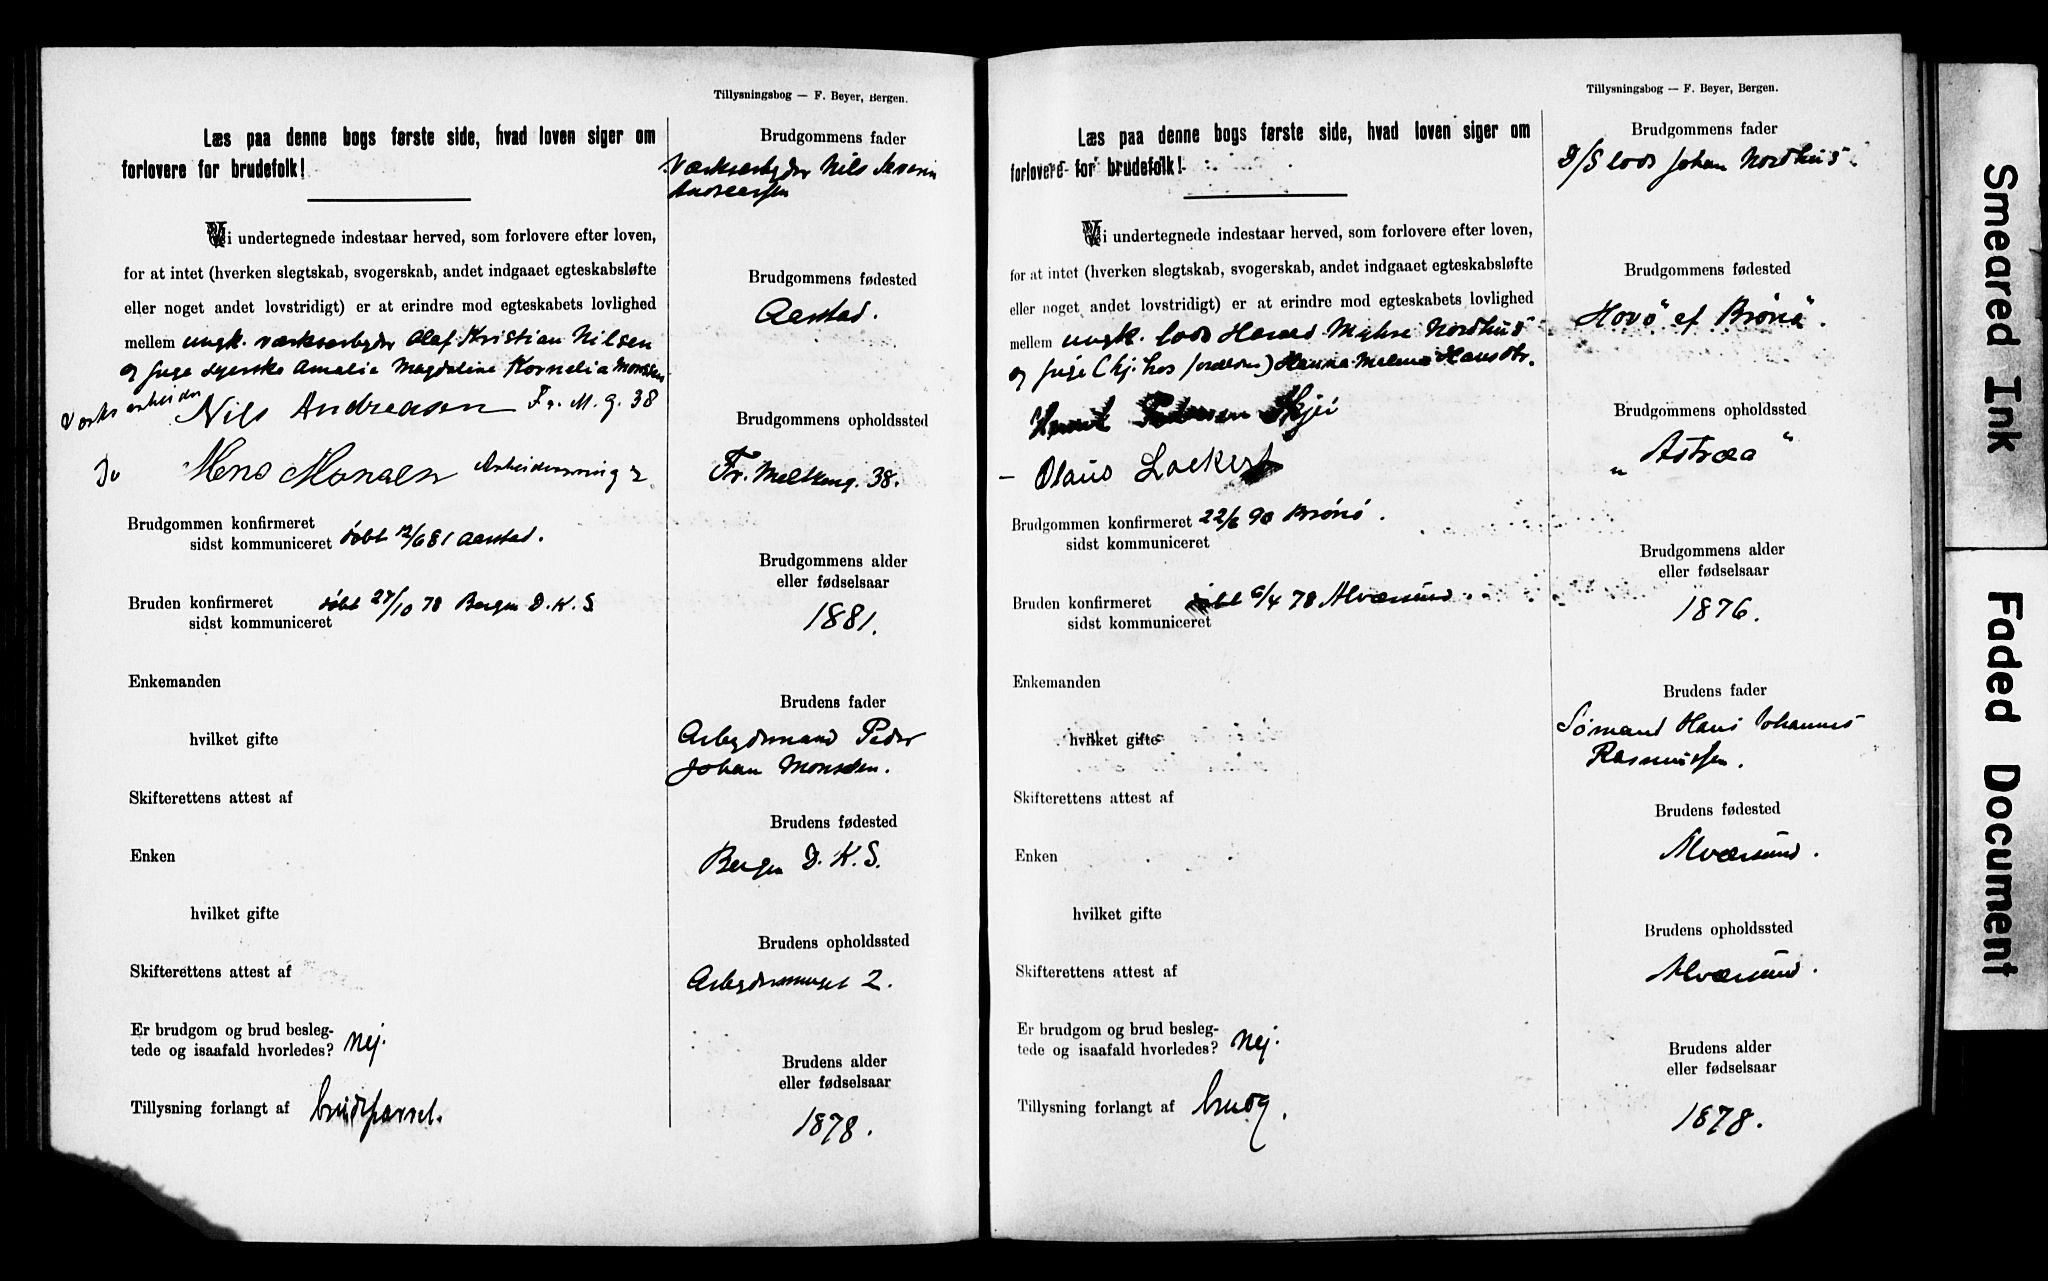 Tillysningsbog — F. Beyer, Bergen.
Læs paa denne bogs første side, hvad loven siger om
forlovere for brudefolk!
Vi undertegnede indestaar herved, som forlovere efter loven,
for at intet (hverken slegtskab, svogerskab, andet indgaaet egteskabsløfte
eller noget andet lovstridigt) er at erindre mod egteskabets lovlighed
mellem ungk. værksarbejder Olaf Kristian Nilsen
og pige syerske Amalie Magdaline Kornelia Monssen
Værksarbeider Nils Andreasen Fr. M. g. 38
Do Mons Monsen
Brudgommen konfirmeret
sidst kommuniceret døbt 12/6 81 Aarstad.
Bruden konfirmeret døbt 27/10 78 Bergen D. K. S
sidst kommuniceret
Enkemanden
hvilket gifte
Skifterettens attest af
Enken
hvilket gifte
Skifterettens attest af
Er brudgom og brud besleg-
tede og isaafald hvorledes? Nej.
Tillysning forlangt af brudeparret.
Brudgommens fader
Værksarbejder Nils Severin
Andreassen
Brudgommens fødested
Aarstad.
Brudgommens opholdssted
Fr. Meltzersg. 38.
Brudgommens alder
eller fødselsaar
1881.
Brudens fader
Arbejdsmand Peder
Johan Monssen.
Brudens fødested
Bergen D. K. S.
Brudens opholdssted
2.
Brudens alder
eller fødselsaar
1878.
Tillysningsbog — F. Beyer, Bergen.
Læs paa denne bogs første side, hvad loven siger om
forlovere for brudefolk!
Vi undertegnede indestaar herved, som forlovere efter loven,
for at intet (hverken slegtskab, svogerskab, andet indgaaet egteskabsløfte
eller noget andet lovstridigt) er at erindre mod egteskabets lovlighed
mellem ungk. lods Nordhus
og pige (hj. hos forældrene) Hanna Malena Hansdtr.
Pedersen Skjei
— Olaus Lockert
Brudgommen konfirmeret 22/6 90 Brønø.
sidst kommuniceret
Bruden konfirmeret døbt 6/4 78 Alværsund.
sidst kommuniceret
Enkemanden
hvilket gifte
Skifterettens attest af
Enken
hvilket gifte
Skifterettens attest af
Er brudgom og brud besleg-
tede og isaafald hvorledes? Nej.
Tillysning forlangt af brudg.
Brudgommens fader
D/S lods Johan Nordhus.
Brudgommens fødested
Hovø af Brønø.
Brudgommens opholdssted
"Astræa"
Brudgommens alder
eller fødselsaar
1876.
Brudens fader
Sømand Hans Johannes
Rasmussen.
Brudens fødested
Alværsund.
Brudens opholdssted
Alværsund.
Brudens alder
eller fødselsaar
1878.
Smeared Ink
Faded Document